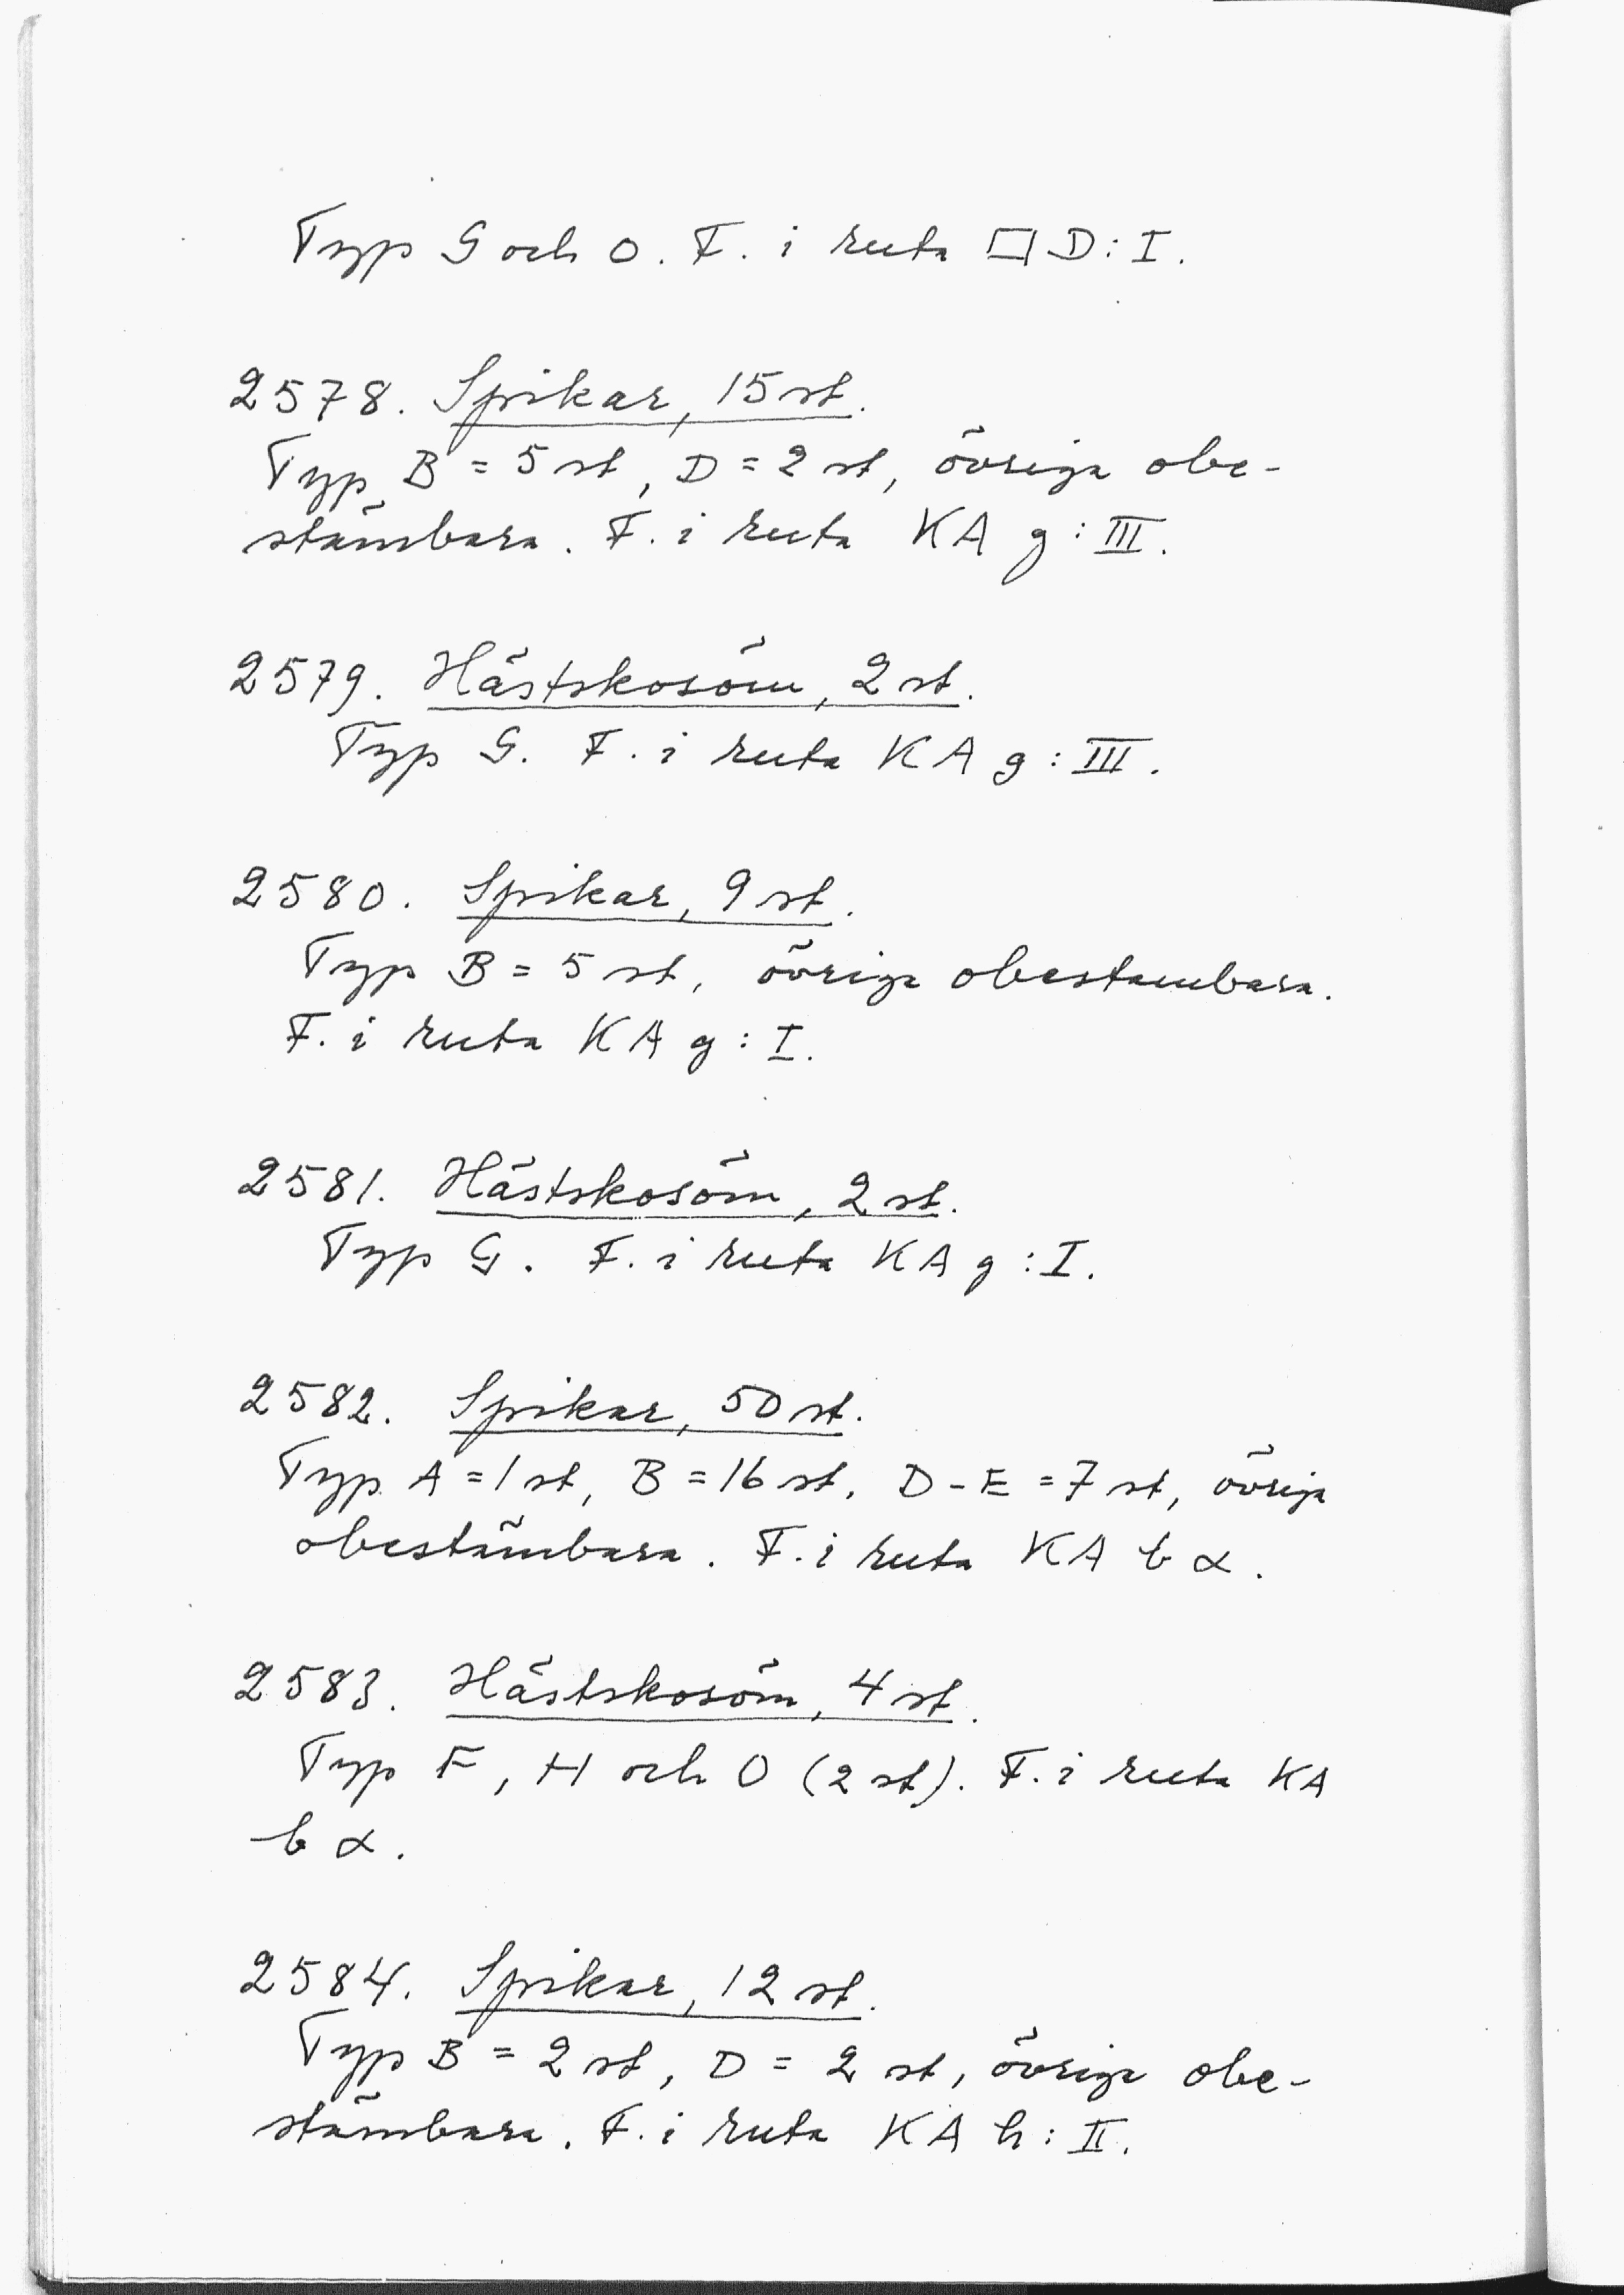 Typ G och O. F. i ruta □ D: I.
2578. Spikar, 15 st.
Typ B = 5 st, D = 2 st, övriga obe-
stämbara. F. i ruta KA g: III.
2579. Hästskosöm, 2 st.
Typ G. F. i ruta KA g: III.
2580. Spikar, 9 st.
Typ B = 5 st, övriga obestambara.
F. i ruta KA g: I.
2581. Hästskosöm, 2 st.
Typ G. F. i ruta KA g: I.
2582. Spikar, 50 st.
Typ A = 1 st, B = 16 st, D - E = 7 st, övriga
obestämbara. F. i ruta KA b α.
2583. Hästskosöm, 4 st.
Typ F, H och O (2 st). F. i ruta KA
b α.
2584. Spikar, 12 st.
Typ B = 2 st, D = 2 st, övriga obe-
stämbara. F. i ruta KA h: II.